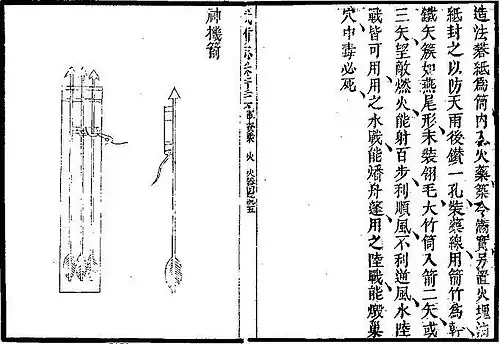 造法礬紙爲筒内入火藥築令滿實另置火塊油
紙封之以防天雨後鑽一孔裝藥線用箭竹爲幹
鐵矢簇如燕尾形末裝翎毛大竹筒入箭二矢或
三矢望敵燃火能射百步利順風不利逆風水陸
戰皆可用用之水戰能燔舟篷用之陸戰能燬巢
穴中毒必死
軍資乘 火 火器圖說五
神機箭